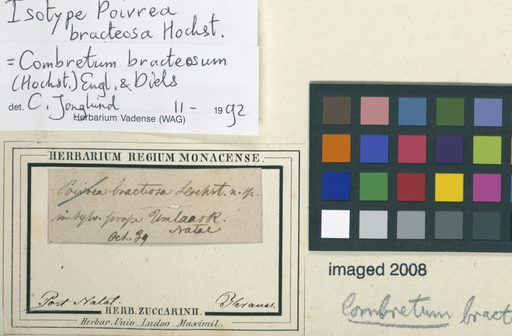 Isotype Poivrea
bracteosa Hochst.
= Combretum bracteosum
(Hochst.) Engl. & Diels
det. C. Jongkind 11 - 1992
Herbarium Vadense (WAG)
HERBARIUM REGIUM MONACENSE.
Poivrea bracteosa Hochst. n. sp.
in sylv. prope Umlaas R.
Natal
Oct. 39
Port Natal. Krauss.
HERB. ZUCCARINII.
Herbar. Univ. Ludov. Maximil.
imaged 2008
Combretum bract